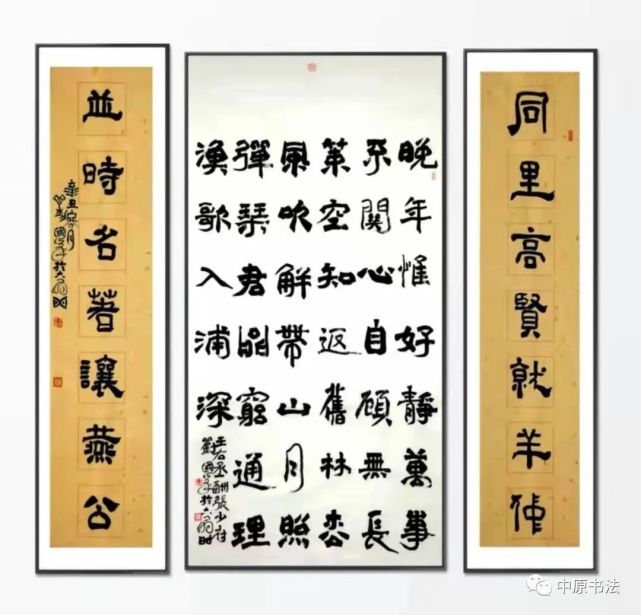 同里高賢就羊仲
晚年惟好靜萬事
不關心自顧無長
策空知返舊林松
風吹解帶山月照
彈琴君問窮通理
漁歌入浦深
王右丞酬張少府
並時名著讓燕公
辛丑
中原书法